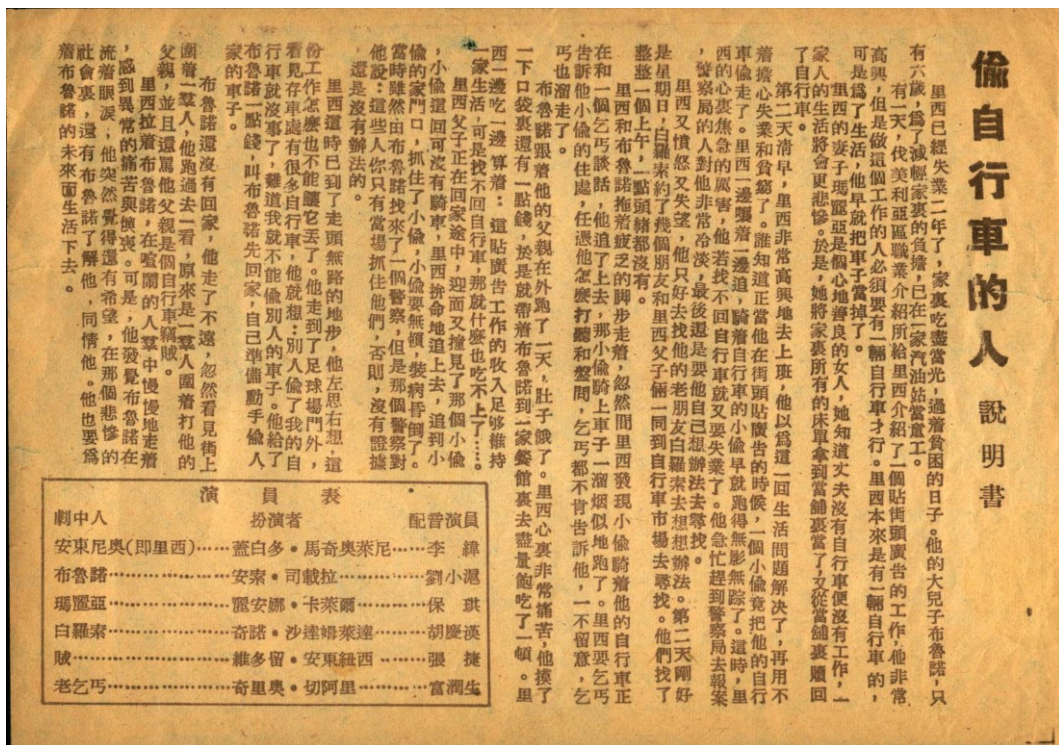 偷自行車的人 說明書
里西已經失業二年了,家裏吃盡當光,過着貧困的日子。他的大兒子布魯諾,只
有六歲,爲了減輕家裏的負擔,已在一家汽油站當童工。
有一天,伐美利亞區職業介紹所給里西介紹了一個貼街頭廣告的工作,他非常
高興,但是做這個工作的人必須要有一輛自行車才行。里西本來是有一輛自行車的,
可是爲了生活,他早就把車子當掉了。
里西的妻子瑪麗亞是個心地善良的女人,她知道丈夫沒有自行車便沒有工作,一
家人的生活將會更悲慘。於是,她將家裏所有的床單拿到當舖裏當了,又從當舖裏贖回
了自行車。
第二天清早,里西非常高興地去上班,他以爲這一回生活問題解決了,再用不
着擔心失業和貧窮了。誰知道正當他在街頭貼廣告的時候,一個小偷竟把他的自行
車偷走了。里西一邊嚷着一邊追,騎着自行車的小偷早就跑得無影無踪了。這時,里
西的心裏焦急的厲害,他若找不回自行車就又要失業了。他急忙趕到警察局去報案
,警察局的人對他非常冷淡,最後還是要他自己想辦法去尋找。
里西又憤怒又失望,他只好去找他的老朋友白羅索去想想辦法。第二天剛好
是星期日,白羅索約了幾個朋友和里西父子倆一同到自行車市場去尋找。他們找了
整整一個上午,一點頭緒都沒有。
里西和布魯諾拖着疲乏的脚步走着,忽然間里西發現小偷騎着他的自行車正
在和一個乞丐談話,他追了上去,那小偷騎上車子一溜烟似地跑了。里西要乞丐
告訴他小偷的住處,任憑他怎麽打聽和盤問,乞丐都不肯告訴他,一不留意,乞
丐也溜走了。
布魯諾跟着他的父親在外跑了一天,肚子餓了。里西心裏非常痛苦,他摸了
一下口袋裏還有一點錢,於是就帶着布魯諾到一家餐館裏去盡量飽吃了一頓。里
西一邊吃一邊算着:這貼廣告工作的收入足够維持
一家生活,可是找不回自行車,那就什麽也吃不上了……。
里西父子正在回家途中,迎面又撞見了那個小偷
,小偷還回可沒有騎車,里西拚命地追上去,追到小
偷的家門口,抓住了小偷,小偷耍無賴,裝病昏倒了。
當時雖然由布魯諾找來了一個警察,但是那個警察對
他說:這些人你只有當場抓住他們,否則,沒有證據
,還是沒有辦法的。
里西這時已到了走頭無路的地步,他左思右想,這
份工作怎麽也不能讓它丟了。他走到了足球場門外,
看見存車處有很多自行車,他就想:別人偷了我的自
行車就沒事了,難道我就不能偷別人的車子。他給了
布魯諾一點錢,叫布魯諾先回家,自己準備動手偷人
家的車子。
布魯諾還沒有回家,他走了不遠,忽然看見街上
圍着一羣人,他跑過去一看,原來是一羣人圍着打他的
父親,並且還罵他父親是個自行車竊賊。
里西拉着布魯諾,在喧鬧的人羣中慢慢地走着
,感到異常的痛苦與頹喪。可是,他發覺布魯諾在
流着眼淚,他突然覺得還有希望,在那個悲慘的
社會裏,還有布魯諾了解他,同情他。他也要爲
着布魯諾的未來而生活下去。
演員表
劇中人 扮演者 配音演員
安東尼奧(即里西)……蓋白多·馬奇奧萊尼……李緯
布魯諾……安索·司載拉……劉小滬
瑪麗亞……麗安娜·卡萊爾……保琪
白羅索……奇諾·沙達姆萊達……胡慶漢
賊……維多留·安東紐西……張捷
老乞丐……奇里奧·切阿里……富潤生